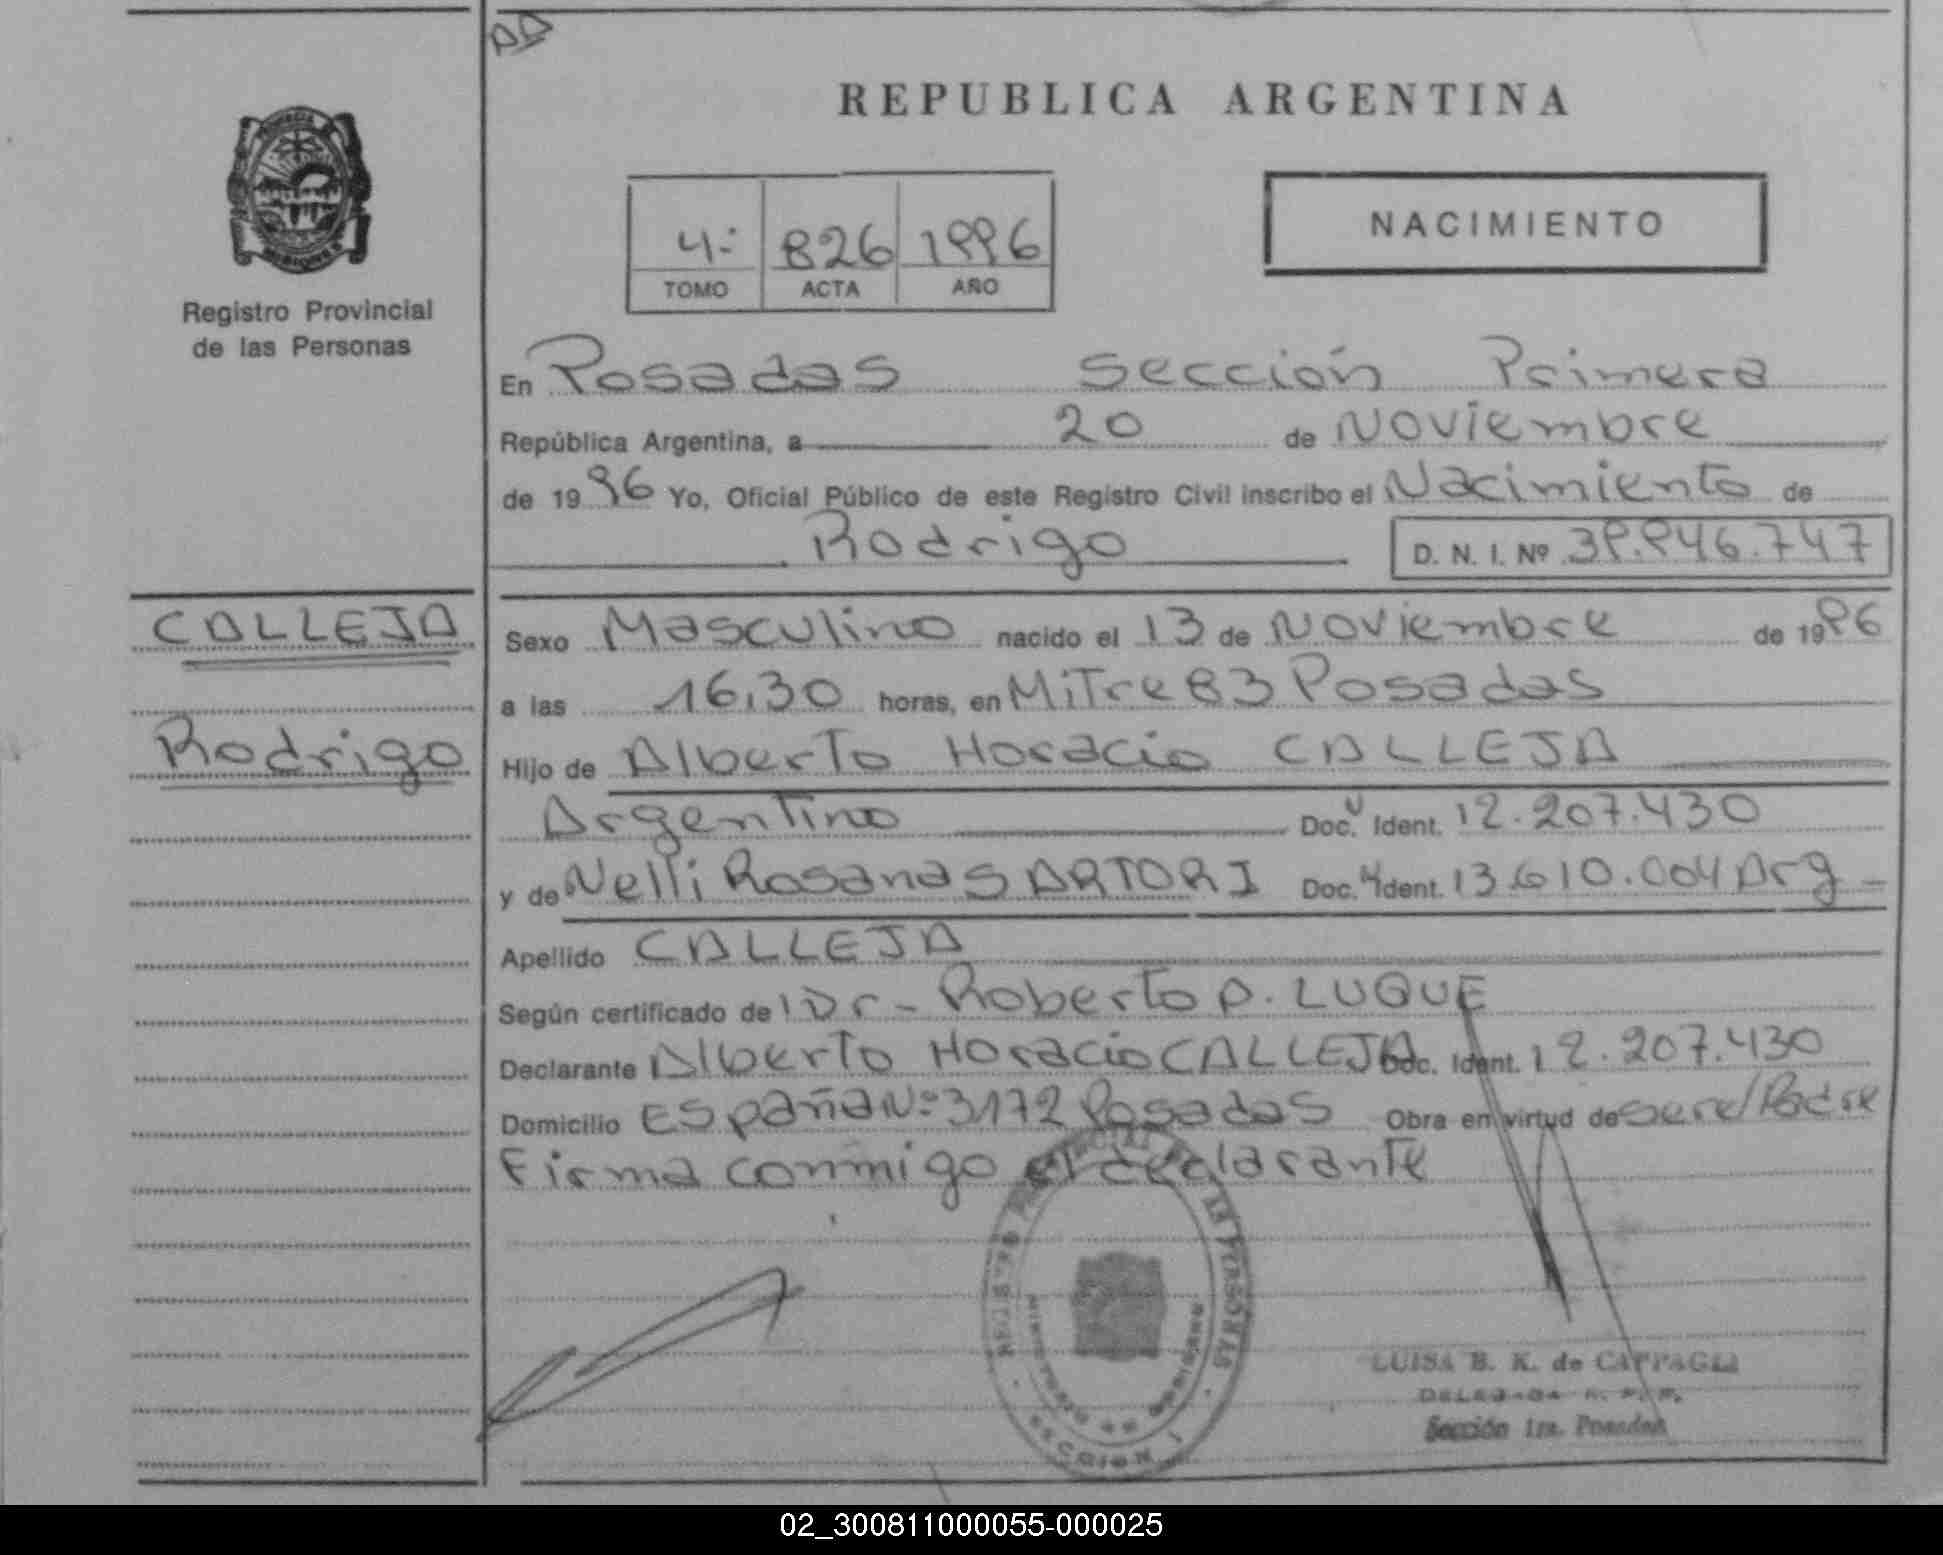 REPUBLICA ARGENTINA
NACIMIENTO
4º 826 1996
TOMO ACTA AÑO
Registro Provincial
de las Personas
En Posadas Sección Primera
República Argentina, a 20 de Noviembre
de 1996 Yo, Oficial Público de este Registro Civil inscribo el Nacimiento de
Rodrigo D. N. I. Nº 39.946.747
CALLEJA
Rodrigo
Sexo Masculino nacido el 13 de Noviembre de 1996
a las 16,30 horas, en Mitre 83 Posadas
Hijo de Alberto Horacio CALLEJA
Argentino Doc. Ident. 12.207.430
y de Nelli Rosana SARTORI Doc. Ident. 13.610.004 Arg
Apellido CALLEJA
Según certificado de l Dr- Roberto D. LUQUE
Declarante Alberto Horacio CALLEJA Doc. Ident. 12.207.430
Domicilio España Nº 3172 Posadas Obra en virtud de ser el Padre
Firma conmigo el declarante
REGISTRO PROVINCIAL DE LAS PERSONAS
SECCION 1
LUISA B. K. de CAPPAGLI
DELEGADA R. P. P.
Sección 1ra. Posadas
02_300811000055-000025